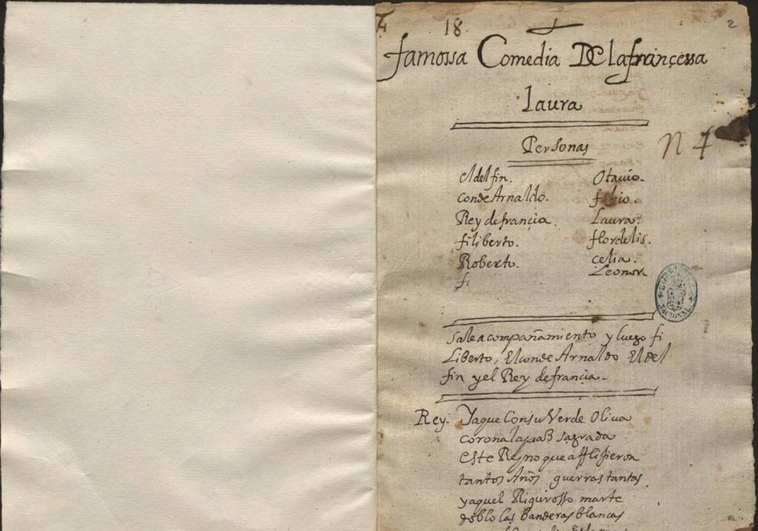 18
2
famossa Comedia De la françessa
laura
Personas
N 4
el delfin. Otauio.
conde Arnaldo. fabio.
Rey de françia. Laura.
filiberto. flordelis.
Roberto. celia.
fi Leonor
Sale acompañamiento y luego fi
liberto, El conde Arnaldo El del
fin y el Rey de françia.
Rey. Ya que Con su Verde Oliua
corona la paz sagrada
este Reyno que afflijieron
tantos Años guerras tantas
ya que el Riguroso marte
doblo las banderas blancas